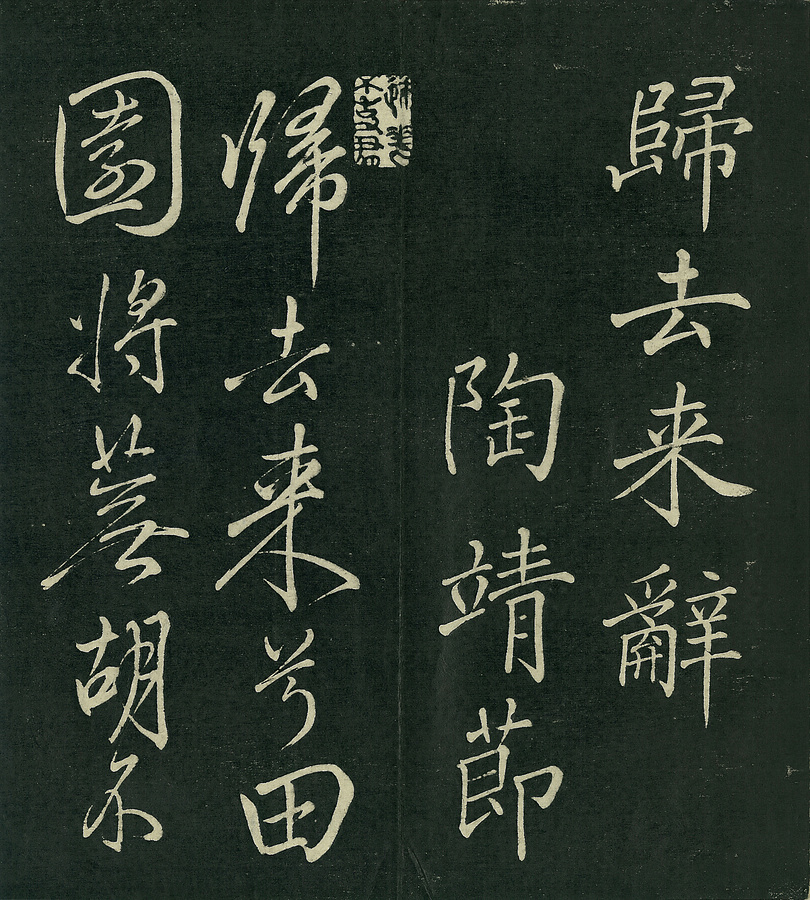 歸去来辭
陶靖節
歸去来兮田
園将蕪胡不